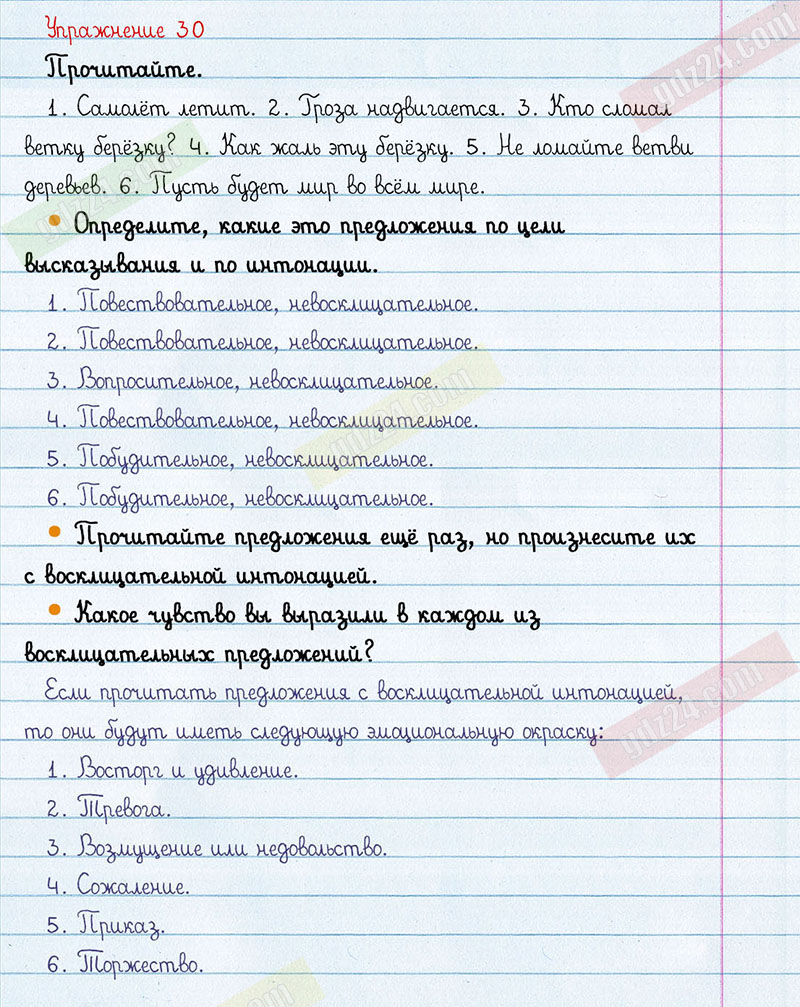 Упражнение 30
Прочитайте.
1. Самолёт летит. 2. Гроза надвигается. 3. Кто сломал
ветку берёзку? 4. Как жаль эту берёзку. 5. Не ломайте ветви
деревьев. 6. Пусть будет мир во всём мире.
• Определите, какие это предложения по цели
высказывания и по интонации.
1. Повествовательное, невосклицательное.
2. Повествовательное, невосклицательное.
3. Вопросительное, невосклицательное.
4. Повествовательное, невосклицательное.
5. Побудительное, невосклицательное.
6. Побудительное, невосклицательное.
• Прочитайте предложения ещё раз, но произнесите их
с восклицательной интонацией.
• Какое чувство вы выразили в каждом из
восклицательных предложений?
Если прочитать предложения с восклицательной интонацией,
то они будут иметь следующую эмоциональную окраску:
1. Восторг и удивление.
2. Тревога.
3. Возмущение или недовольство.
4. Сожаление.
5. Приказ.
6. Торжество.
ydz24.com
ydz24.com
ydz24.com
ydz24.com